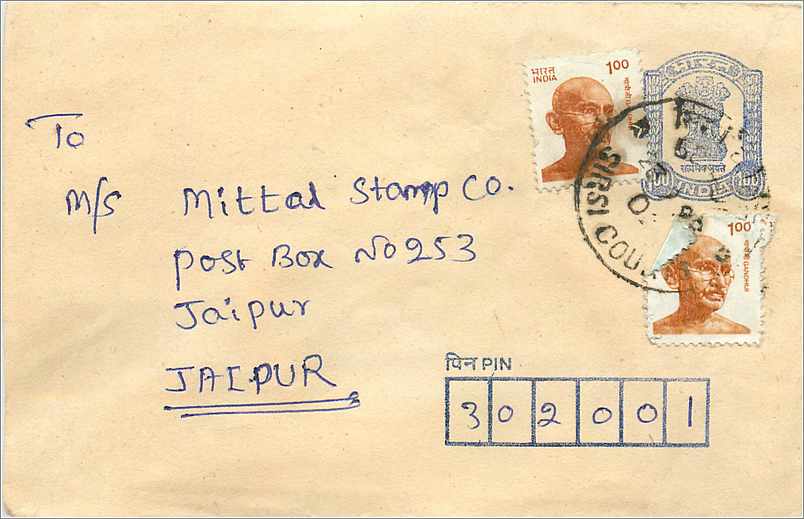 भारत
INDIA
100
महात्मा गांधी GANDHIJI
सत्यमेव जयते
100 INDIA 100
SIRSI COU
1.00
GANDHIJI
To
M/S Mittal Stamp Co.
Post Box No 253
Jaipur
JAIPUR
पिन PIN
3 0 2 0 0 1